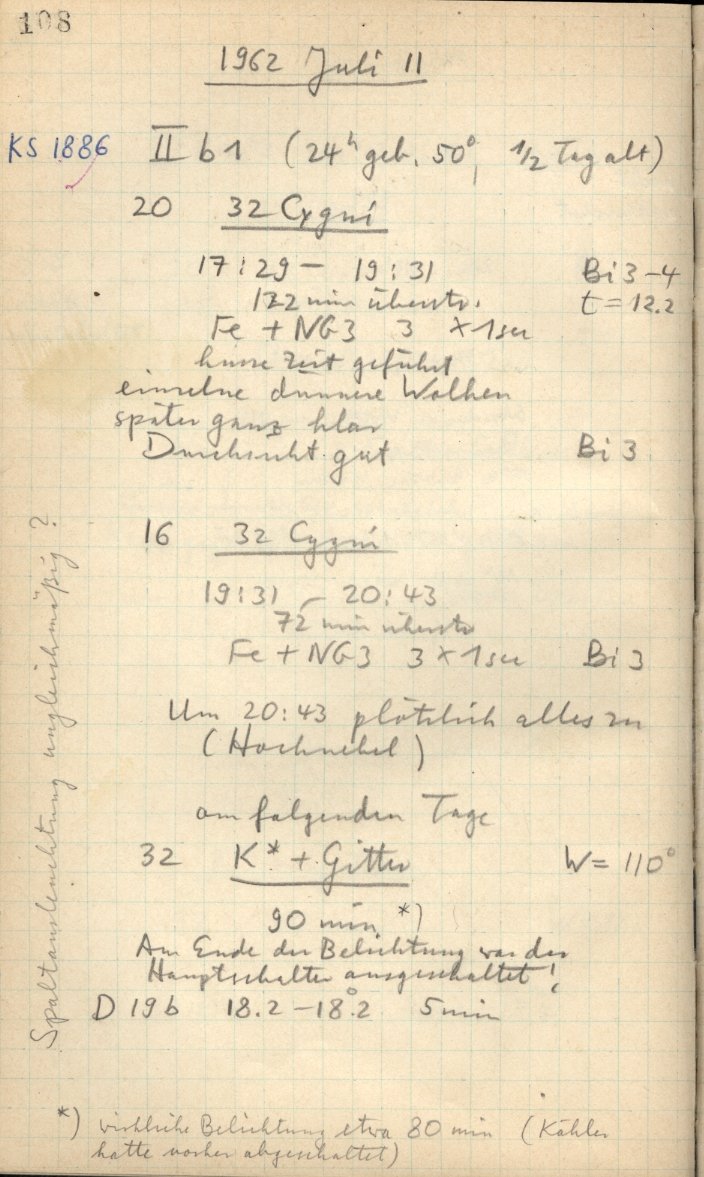 108
1962 Juli 11
KS 1886 II b 1 (24h geb. 50°, 1/2 Tag alt)
20 32 Cygni
17:29 – 19:31 Bi 3-4
122 min überstr. t = 12.2
Fe + NG3 3 × 1 sec
kurze Zeit geführt
einzelne dünnere Wolken
später ganz klar
Durchsicht gut Bi 3
16 32 Cygni
19:31 – 20:43
72 min überstr
Fe + NG3 3 × 1 sec Bi 3
Um 20:43 plötzlich alles zu
(Hochnebel)
am folgenden Tage
32 K* + Gitter W = 110°
90 min *)
Am Ende der Belichtung war der
Hauptschalter ausgeschaltet!
D 19 b 18.2 – 18.°2 5 min
Spaltausleuchtung ungleichmäßig?
*) wirkliche Belichtung etwa 80 min (Köhler
hatte vorher abgeschaltet)